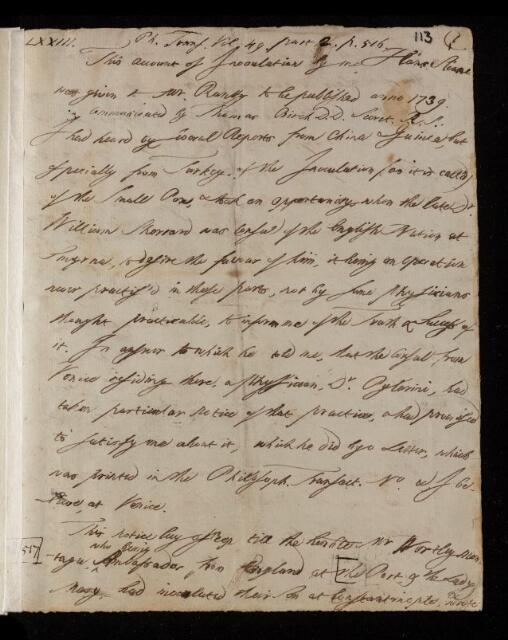 LXXIII. Ph. Trans. Vol. 49. part 2. p. 516. 113
This account of Inoculation by me Hans Sloane
was given to Mr. Ranby to be published anno 1739.
Communicated by Thomas Birch D.D. Secret. R.S.
I had heard by several Reports from China & Guinea but
especially from Turkey, of the Inoculation (as it is called)
of the Small Pox, & had an opportunity when the late Dr.
William Sherrard was Consul of the English Nation at
Smyrna, to desire the favour of him, it being an operation
never practis'd in these parts, nor by some Physicians
thought practicable, to inform me of the Truth & Success of
it. In answer to which he told me, that the Consul from
Venice residing there, a Physician, Dr. had
taken particular notice of that practice, & had promised
to satisfy me about it, which he did by a Letter, which
was printed in the Philosoph. Transact. No. as I be-
lieve, at Venice.
This notice lay asleep till the Mr Wortley Mon-
557
-tague who being Ambassador from England at [the Port, & the Lady
Mary, had inoculated their Son at Constantinople,